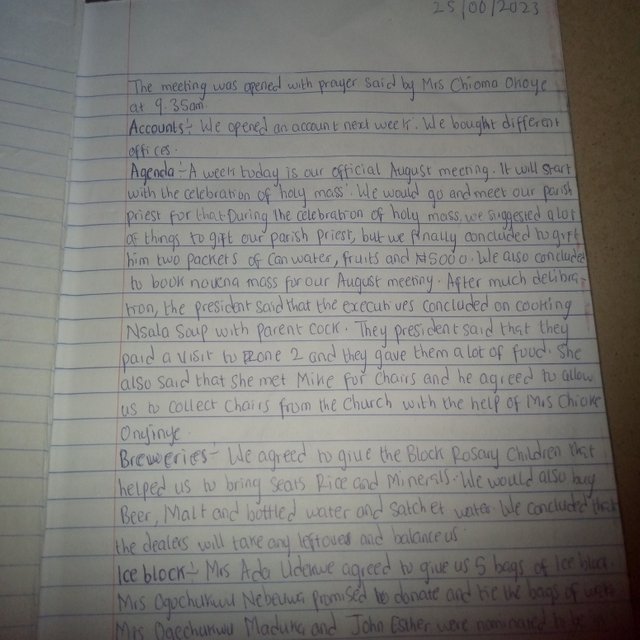 25/00/2023
The meeting was opened with prayer said by Mrs Chioma Okoye
at 9.35am
Accounts:- We opened an account next week. We bought different
offices.
Agenda:- A week today is our official August meeting. It will start
with the celebration of holy mass. We would go and meet our parish
priest for that. During the celebration of holy mass, we suggested a lot
of things to gift our parish priest, but we finally concluded to gift
him two packets of can water, fruits and ₦5000. We also conclude
to book novena mass for our August meeting. After much delibra-
tion, the president said that the executives concluded on cooking
Nsala Soup with parent cock. They president said that they
paid a visit to zone 2 and they gave them a lot of food. She
also said that she met Mike for Chairs and he agreed to allow
us to collect Chairs from the Church with the help of Mrs Chioke
Breweries:- We agreed to give the Block Rosary Children that
helped us to bring seats Rice and Minerals. We would also buy
Beer, Malt and bottled water and satchet water. We concluded that
the dealers will take any leftovers and balance us.
Ice block:- Mrs Ada Udekwe agreed to give us 5 bags of Ice block
Mrs Ogochukwu promised to donate and tie the bags of
Mrs Ogechukwu Maduka and John Esther were nominated to be in